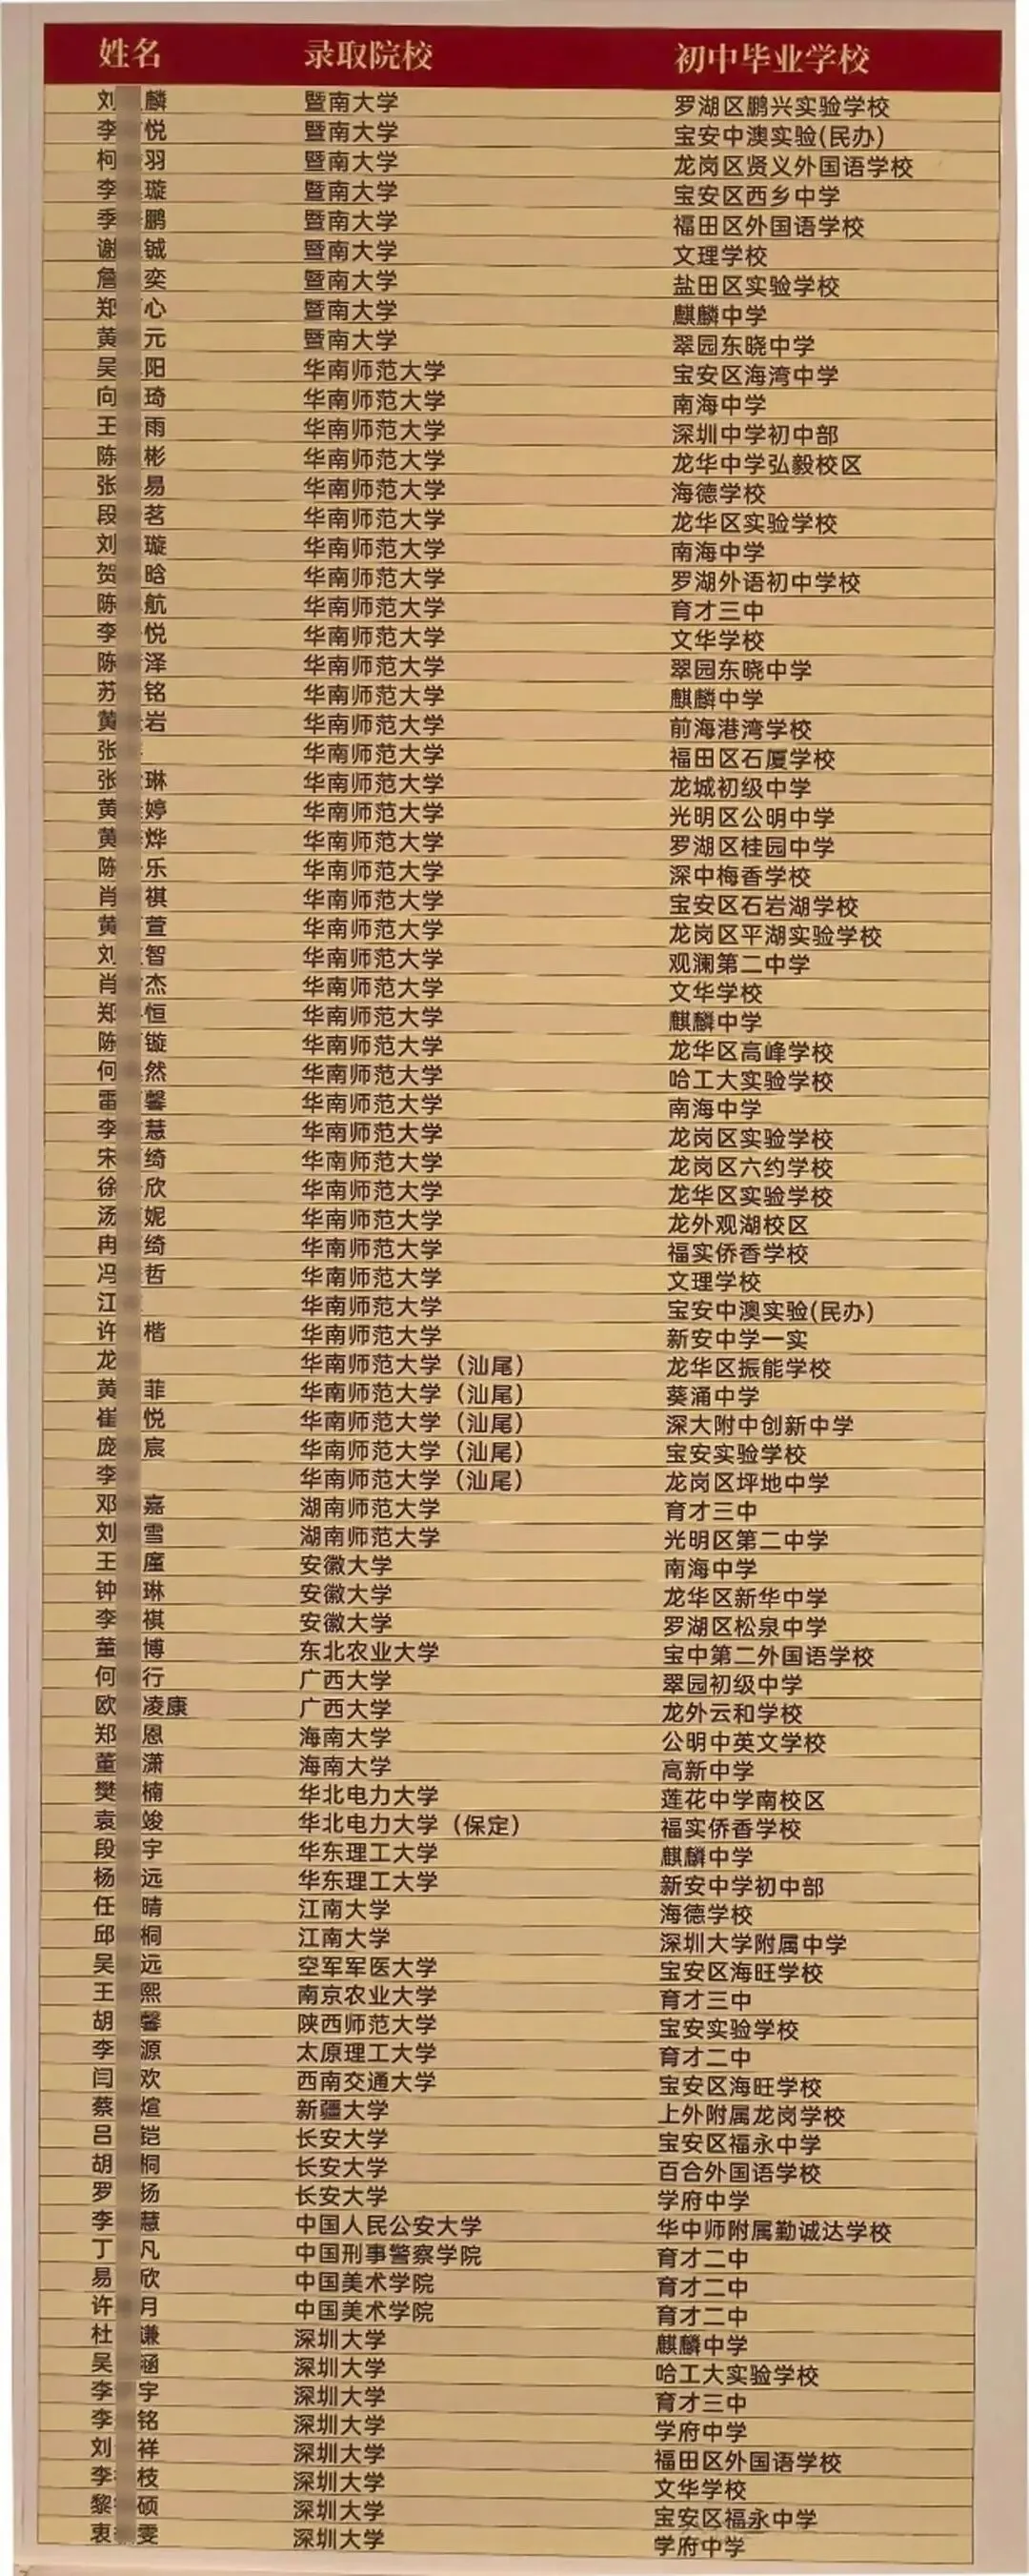 姓名 录取院校 初中毕业学校
刘 麟 暨南大学 罗湖区鹏兴实验学校
李 悦 暨南大学 宝安中澳实验(民办)
柯 羽 暨南大学 龙岗区贤义外国语学校
李 璇 暨南大学 宝安区西乡中学
季 鹏 暨南大学 福田区外国语学校
谢 铖 暨南大学 文理学校
詹 奕 暨南大学 盐田区实验学校
郑 心 暨南大学 麒麟中学
黄 元 暨南大学 翠园东晓中学
吴 阳 华南师范大学 宝安区海湾中学
向 琦 华南师范大学 南海中学
王 雨 华南师范大学 深圳中学初中部
陈 彬 华南师范大学 龙华中学弘毅校区
张 易 华南师范大学 海德学校
段 茗 华南师范大学 龙华区实验学校
刘 璇 华南师范大学 南海中学
贺 晗 华南师范大学 罗湖外语初中学校
陈 航 华南师范大学 育才三中
李 悦 华南师范大学 文华学校
陈 泽 华南师范大学 翠园东晓中学
苏 铭 华南师范大学 麒麟中学
黄 岩 华南师范大学 前海港湾学校
张 华南师范大学 福田区石厦学校
张 琳 华南师范大学 龙城初级中学
黄 婷 华南师范大学 光明区公明中学
黄 烨 华南师范大学 罗湖区桂园中学
陈 乐 华南师范大学 深中梅香学校
肖 祺 华南师范大学 宝安区石岩湖学校
黄 萱 华南师范大学 龙岗区平湖实验学校
刘 智 华南师范大学 观澜第二中学
肖 杰 华南师范大学 文华学校
郑 恒 华南师范大学 麒麟中学
陈 镟 华南师范大学 龙华区高峰学校
何 然 华南师范大学 哈工大实验学校
雷 馨 华南师范大学 南海中学
李 慧 华南师范大学 龙岗区实验学校
宋 绮 华南师范大学 龙岗区六约学校
徐 欣 华南师范大学 龙华区实验学校
汤 妮 华南师范大学 龙外观湖校区
冉 绮 华南师范大学 福实侨香学校
冯 哲 华南师范大学 文理学校
江 华南师范大学 宝安中澳实验(民办)
许 楷 华南师范大学 新安中学一实
龙 华南师范大学（汕尾） 龙华区振能学校
黄 菲 华南师范大学（汕尾） 葵涌中学
崔 悦 华南师范大学（汕尾） 深大附中创新中学
庞 宸 华南师范大学（汕尾） 宝安实验学校
李 华南师范大学（汕尾） 龙岗区坪地中学
邓 嘉 湖南师范大学 育才三中
刘 雪 湖南师范大学 光明区第二中学
王 安徽大学 南海中学
钟 琳 安徽大学 龙华区新华中学
李 祺 安徽大学 罗湖区松泉中学
董 博 东北农业大学 宝中第二外国语学校
何 行 广西大学 翠园初级中学
欧 凌康 广西大学 龙外云和学校
郑 恩 海南大学 公明中英文学校
董 潇 海南大学 高新中学
樊 楠 华北电力大学 莲花中学南校区
袁 竣 华北电力大学（保定） 福实侨香学校
段 宇 华东理工大学 麒麟中学
杨 远 华东理工大学 新安中学初中部
任 晴 江南大学 海德学校
邱 桐 江南大学 深圳大学附属中学
吴 远 空军军医大学 宝安区海旺学校
王 熙 南京农业大学 育才三中
胡 馨 陕西师范大学 宝安实验学校
李 源 太原理工大学 育才二中
闫 欢 西南交通大学 宝安区海旺学校
蔡 煊 新疆大学 上外附属龙岗学校
吕 铠 长安大学 宝安区福永中学
胡 桐 长安大学 百合外国语学校
罗 扬 长安大学 学府中学
李 慧 中国人民公安大学 华中师附属勤诚达学校
丁 凡 中国刑事警察学院 育才二中
易 欣 中国美术学院 育才二中
许 月 中国美术学院 育才二中
杜 谦 深圳大学 麒麟中学
吴 涵 深圳大学 哈工大实验学校
李 宇 深圳大学 育才三中
李 铭 深圳大学 学府中学
刘 祥 深圳大学 福田区外国语学校
李 枝 深圳大学 文华学校
黎 硕 深圳大学 宝安区福永中学
衷 雯 深圳大学 学府中学